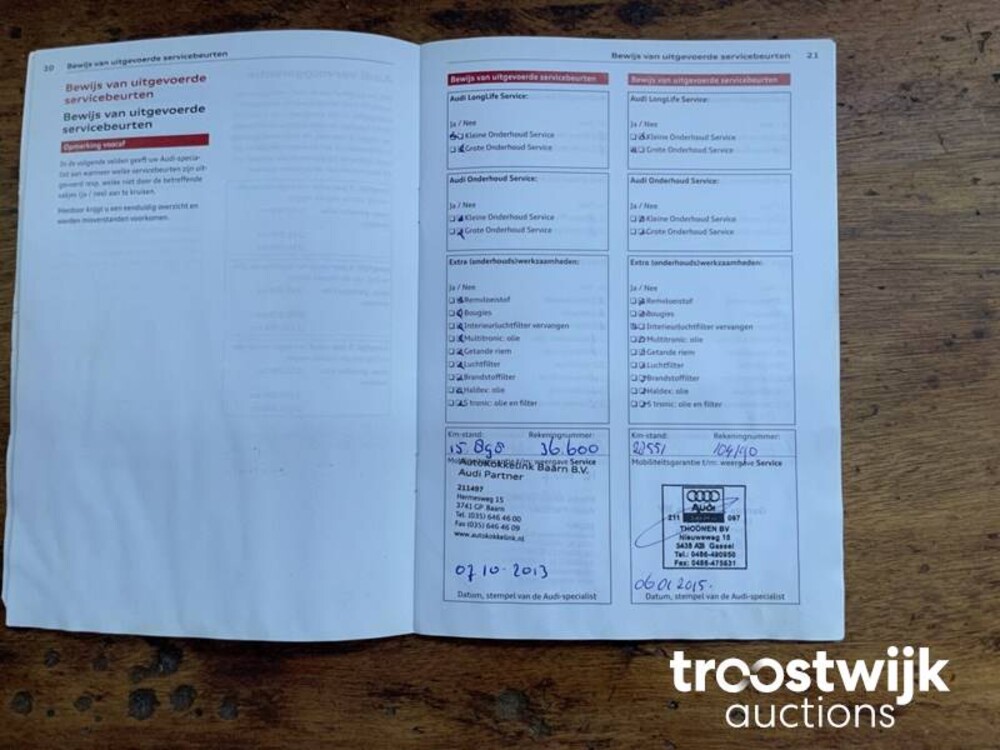 20 Bewijs van uitgevoerde servicebeurten
Bewijs van uitgevoerde
servicebeurten
Bewijs van uitgevoerde
servicebeurten
Opmerking vooraf
In de volgende velden geeft uw Audi-specia-
list aan wanneer welke servicebeurten zijn uit-
gevoerd resp. welke niet door de betreffende
vakjes (ja / nee) aan te kruisen.
Hierdoor krijgt u een eenduidig overzicht en
worden misverstanden voorkomen.
Bewijs van uitgevoerde servicebeurten 21
Bewijs van uitgevoerde servicebeurten
Audi LongLife Service:
Ja / Nee
Kleine Onderhoud Service
Grote Onderhoud Service
Audi Onderhoud Service:
Ja / Nee
Kleine Onderhoud Service
Grote Onderhoud Service
Extra (onderhouds)werkzaamheden:
Ja / Nee
Remvloeistof
Bougies
Interieurluchtfilter vervangen
Multitronic: olie
Getande riem
Luchtfilter
Brandstoffilter
Haldex: olie
S tronic: olie en filter
Km-stand: Rekeningnummer:
15.898 36.600
Mobiliteitsgarantie t/m: weergave Service
AutoKokkelink Baarn B.V.
Audi Partner
211497
Hermesweg 15
3741 GP Baarn
Tel. (035) 646 46 00
Fax (035) 646 46 09
www.autokokkelink.nl
07 10 - 2013
Datum, stempel van de Audi-specialist
Bewijs van uitgevoerde servicebeurten
Audi LongLife Service:
Ja / Nee
Kleine Onderhoud Service
Grote Onderhoud Service
Audi Onderhoud Service:
Ja / Nee
Kleine Onderhoud Service
Grote Onderhoud Service
Extra (onderhouds)werkzaamheden:
Ja / Nee
Remvloeistof
Bougies
Interieurluchtfilter vervangen
Multitronic: olie
Getande riem
Luchtfilter
Brandstoffilter
Haldex: olie
S tronic: olie en filter
Km-stand: Rekeningnummer:
Mobiliteitsgarantie t/m: weergave Service
Audi
211 067
THOONEN BV
Nieuweweg 15
5438 Gassel
Tel.: 0486-490950
Fax: 0486-475631
06 01 2015.
Datum, stempel van de Audi-specialist
troostwijk
auctions